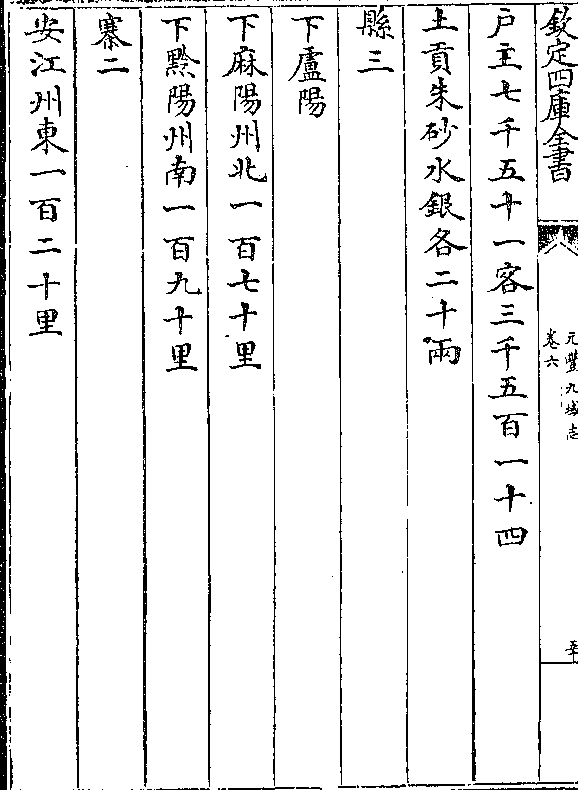 欽定四庫全書
元豐九域志
卷六
户主七千五十一客三千五百一十四
土貢朱砂水銀各二十兩
縣三
下盧陽
下麻陽州北一百七十里
下黔陽州南一百九十里
寨二
安江州東一百二十里